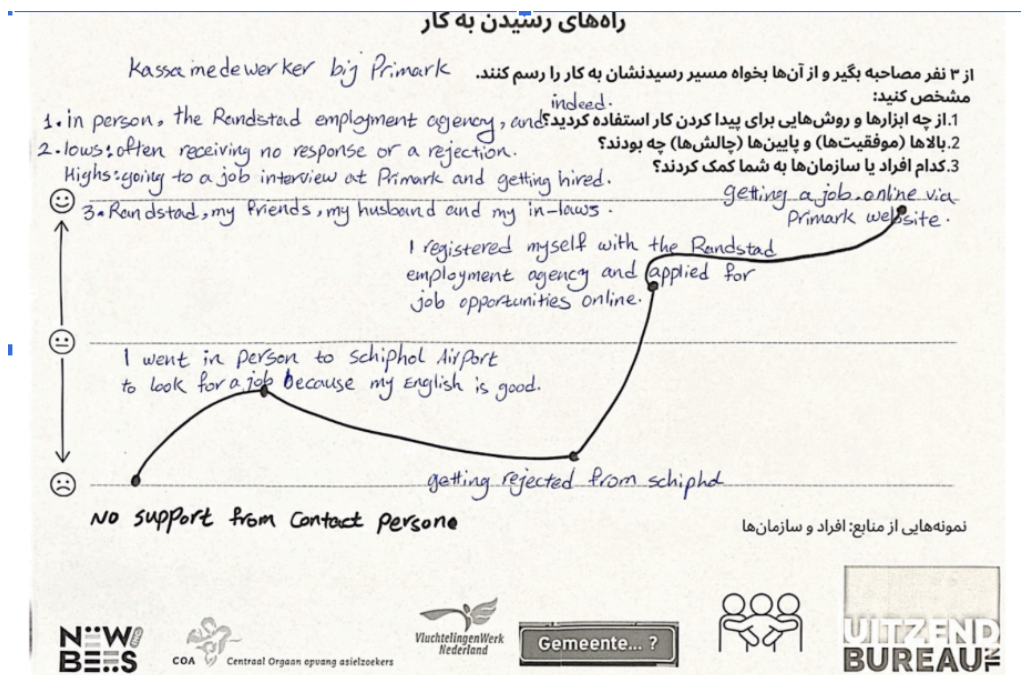 راه‌های رسیدن به کار
Kassamedewerker bij Primark
از ۳ نفر مصاحبه بگیر و از آن‌ها بخواه مسیر رسیدنشان به کار را رسم کنند.
مشخص کنید:
1.از چه ابزارها و روش‌هایی برای پیدا کردن کار استفاده کردید؟
2.بالاها (موفقیت‌ها) و پایین‌ها (چالش‌ها) چه بودند؟
3.کدام افراد یا سازمان‌ها به شما کمک کردند؟
1. in person, the Randstad employment agency, and indeed.
2. lows: often receiving no response or a rejection.
Highs: going to a job interview at Primark and getting hired.
3. Randstad, my friends, my husband and my in-laws.
getting a job online via
Primark website.
I registered myself with the Randstad
employment agency and applied for
job opportunities online.
I went in person to schiphol Airport
to look for a job because my English is good.
getting rejected from schiphol
No support from Contact persone
نمونه‌هایی از منابع: افراد و سازمان‌ها
NEW
BEES
COA Centraal Orgaan opvang asielzoekers
VluchtelingenWerk
Nederland
Gemeente... ?
UITZEND
BUREAU